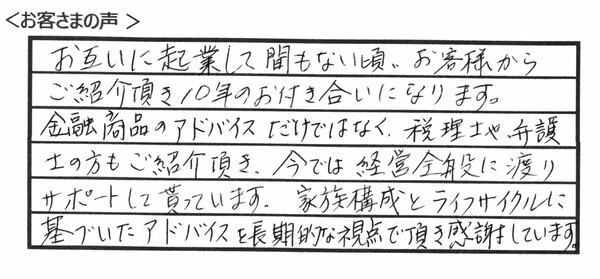 ＜お客さまの声＞
お互いに起業して間もない頃、お客様から
ご紹介頂き10年のお付き合いになります。
金融商品のアドバイスだけではなく、税理士や弁護
士の方もご紹介頂き、今では経営全般に渡り
サポートして貰っています。家族構成とライフサイクルに
基づいたアドバイスを長期的な視点で頂き感謝しています。